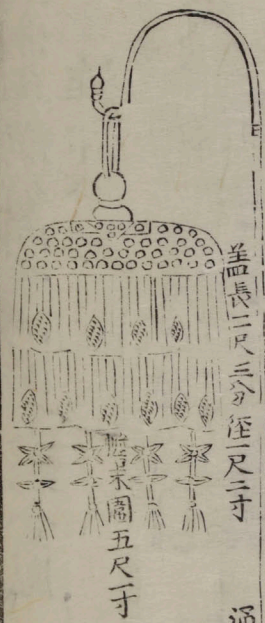 盖長二尺三分徑一尺二寸
圖五尺一寸
通